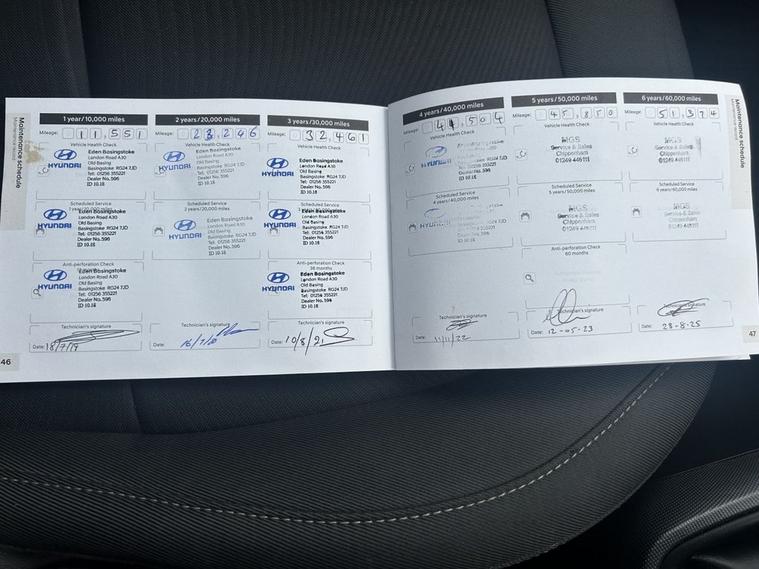 Maintenance schedule
1 year/10,000 miles
Mileage: 11,551
Vehicle Health Check
HYUNDAI
Eden Basingstoke
London Road A30
Old Basing
Basingstoke RG24 7JD
Tel: 01256 355221
Dealer No. 596
ID 10.18
Scheduled Service
HYUNDAI
Eden Basingstoke
London Road A30
Old Basing
Basingstoke RG24 7JD
Tel: 01256 355221
Dealer No. 596
ID 10.18
Anti-perforation Check
HYUNDAI
Eden Basingstoke
London Road A30
Old Basing
Basingstoke RG24 7JD
Tel: 01256 355221
Dealer No. 596
ID 10.18
Technician's signature
Date: 18/7/19
2 years/20,000 miles
Mileage: 23,246
Vehicle Health Check
HYUNDAI
Eden Basingstoke
London Road A30
Old Basing
Basingstoke RG24 7JD
Tel: 01256 355221
Dealer No. 596
ID 10.18
Scheduled Service
2 years/20,000 miles
HYUNDAI
Eden Basingstoke
London Road A30
Old Basing
Basingstoke RG24 7JD
Tel: 01256 355221
Dealer No. 596
ID 10.18
Technician's signature
Date:
3 years/30,000 miles
Mileage: 32,461
Vehicle Health Check
HYUNDAI
Eden Basingstoke
London Road A30
Old Basing
Basingstoke RG24 7JD
Tel: 01256 355221
Dealer No. 596
ID 10.18
Scheduled Service
HYUNDAI
Eden Basingstoke
London Road A30
Old Basing
Basingstoke RG24 7JD
Tel: 01256 355221
Dealer No. 596
ID 10.18
Anti-perforation Check
36 months
HYUNDAI
Eden Basingstoke
London Road A30
Old Basing
Basingstoke RG24 7JD
Tel: 01256 355221
Dealer No. 596
ID 10.18
Technician's signature
Date: 10/8/21
46
4 years/40,000 miles
Mileage:
Vehicle Health Check
HYUNDAI
Old Basing
Basingstoke RG24 7JD
Tel: 01256 355221
Dealer No. 596
ID 10.18
Scheduled Service
4 years/40,000 miles
HYUNDAI
Technician's signature
Date: 11/11/22
5 years/50,000 miles
Mileage: 45,850
Vehicle Health Check
Service & Sales
Chippenham
01249 445111
Scheduled Service
5 years/50,000 miles
Service & Sales
Chippenham
Anti-perforation Check
60 months
Technician's signature
Date: 12-05-23
6 years/60,000 miles
Mileage: 51,374
Vehicle Health Check
Service & Sales
Chippenham
01249 445111
Scheduled Service
6 years/60,000 miles
Service & Sales
Chippenham
Technician's signature
Date: 28-8-25
Maintenance schedule
47